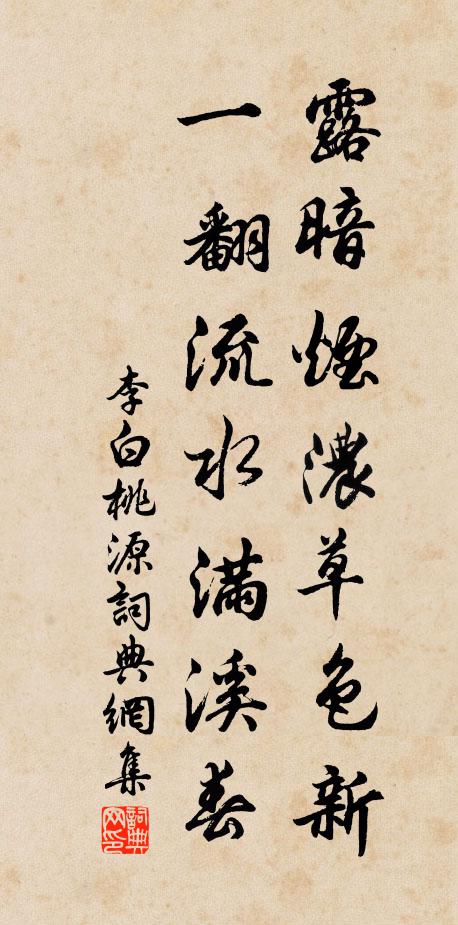 露暗煙濃草色新
一翻流水滿溪春
李白桃源詞典網集
詞典網印